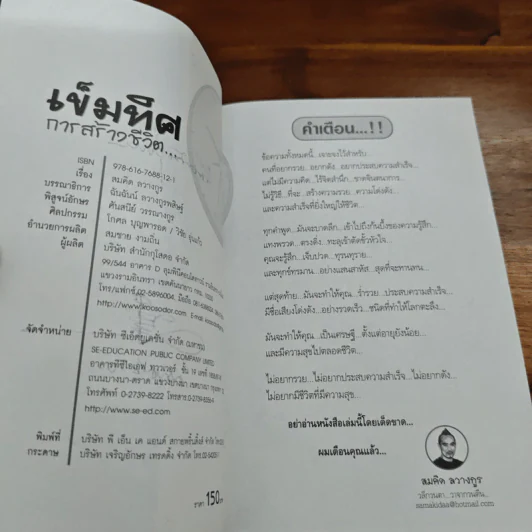 เข็มทิศ
การสร้างชีวิต...
ISBN 978-616-7688-12-1
เรื่อง สมคิด ลวางกูร
บรรณาธิการ ฉันฉันน์ ลวางกูรพสิษฐ์
พิสูจน์อักษร ศันสนีย์ วรรณางกูร
ศิลปกรรม โกศล บุญพารอด / วิชัย
อำนวยการผลิต สมชาย งามถิ่น
ผู้ผลิต บริษัท สำนักกูโสดอ จำกัด
99/544 อาคาร D
แขวงรามอินทรา เขตคันนายาว กทม.
โทร/แฟกซ์.02-5896004,
http://www.koosodor.com
จัดจำหน่าย บริษัท ซีเอ็ดยูเคชั่น จำกัด (มหาชน)
SE-EDUCATION PUBLIC COMPANY LIMITED
อาคารทีซีไอเอฟ ทาวเวอร์ ชั้น 19 เลขที่
ถนนบางนา-ตราด แขวงบางนา เขตบางนา
โทรศัพท์ 0-2739-8222 โทรสาร
http://www.se-ed.com
พิมพ์ที่ บริษัท พี เอ็น เค แอนด์ สกายพริ้นติ้งส์ จำกัด
กระดาษ บริษัท เจริญอักษร เทรดดิ้ง จำกัด
ราคา 150.-
คำเตือน...!!
ข้อความทั้งหมดนี้...เจาะจงไว้สำหรับ...
คนที่อยากรวย...อยากดัง...อยากประสบความสำเร็จ...
แต่ไม่มีความคิด...ไร้จิตสำนึก...ขาดจินตนาการ...
ไม่รู้วิธี...ที่จะ...สร้างความรวย...ความโด่งดัง...
และความสำเร็จที่ยิ่งใหญ่ให้ชีวิต...
ทุกคำพูด...มันจะบาดลึก...เข้าไปถึงก้นบึ้งของความรู้สึก...
แทงพรวด...ตรงดิ่ง...ทะลุเข้าตัดขั้วหัวใจ...
คุณจะรู้สึก...เจ็บปวด...ทุรนทุราย...
และทุกข์ทรมาน...อย่างแสนสาหัส...สุดที่จะทานทน...
แต่สุดท้าย...มันจะทำให้คุณ...ร่ำรวย...ประสบความสำเร็จ...
มีชื่อเสียงโด่งดัง...อย่างรวดเร็ว...ชนิดที่ทำให้โลกตะลึง...
มันจะทำให้คุณ...เป็นเศรษฐี...ตั้งแต่อายุยังน้อย...
และมีความสุขไปตลอดชีวิต...
ไม่อยากรวย...ไม่อยากประสบความสำเร็จ...ไม่อยากดัง...
ไม่อยากมีชีวิตที่มีความสุข...
อย่าอ่านหนังสือเล่มนี้โดยเด็ดขาด...
ผมเตือนคุณแล้ว...
สมคิด ลวางกูร